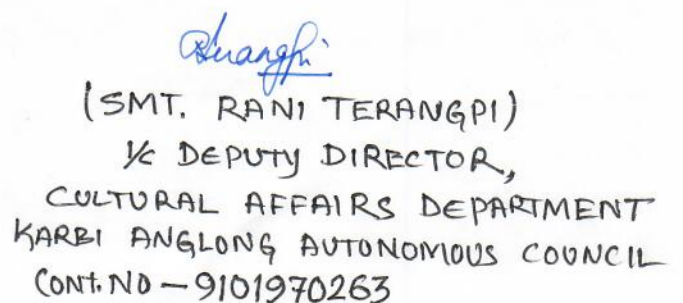 (SMT. RANI TERANGPI)
I/C DEPUTY DIRECTOR,
CULTURAL AFFAIRS DEPARTMENT
KARBI ANGLONG AUTONOMOUS COUNCIL
CONT. NO - 9101970263